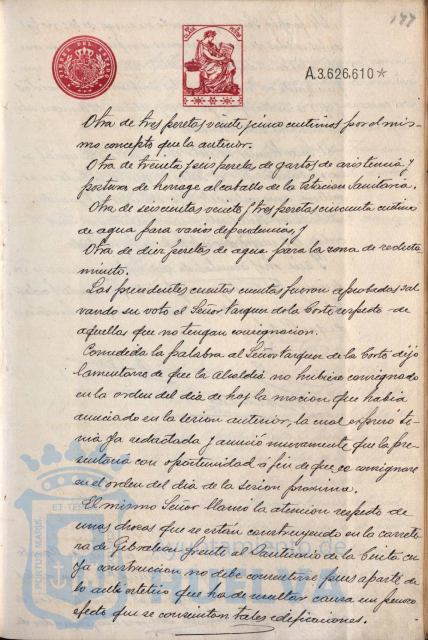 177
A.3.626.610*
Otra de tres pesetas veinte y cinco centimos por el mis-
mo concepto que la anterior.
Otra de treinta y seis pesetas de gastos de asistencia y
postura de herrage al caballo de la Estacion Sanitaria.
Otra de seiscientas veinte y tres pesetas cincuenta centimos
de agua para varias dependencias, y
Otra de diez pesetas de agua para la zona de recluta
miento.
Las precedentes cuentas fueron aprobadas sal
vando su voto el Señor Vazquez de la Corte respecto de
aquellas que no tengan consignacion.
Concedida la palabra al Señor Vazquez de la Corte dijo
lamentarse de que la Alcaldia no hubiese consignado
en la orden del dia de hoy la mocion que habia
anunciado en la sesion anterior, la cual espresó te-
nia ya redactada y anunció nuevamente que la pre-
sentaria con oportunidad á fin de que se consignase
en el orden del dia de la sesion proxima.
El mismo Señor llamó la atencion respecto de
unas chozas que se estan construyendo en la carrete-
ra de Gibraleon frente al Santuario de la Cinta cu-
ya construccion no debe consentirse pues aparte de
lo antiestetico que ha de resultar causa un penoso
efecto que se consientan tales edificaciones.